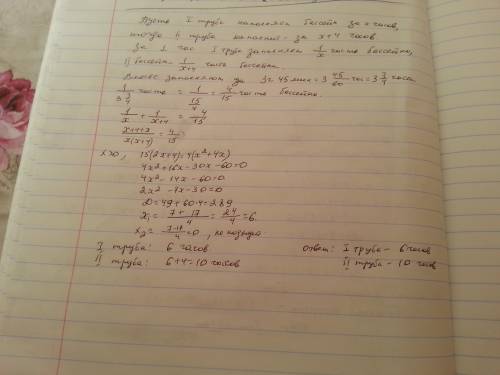 Пусть I труба наполняет бассейн за x часов,
тогда II труба наполнит - за x+4 часов
За 1 час I труба заполняет 1/x часть бассейна,
II бассейн - 1/(x+4) часть бассейна.
Вместе заполняют за 3ч 45 мин = 3 45/60 час = 3 3/4 часа
1/(3 3/4) часть = 1/(15/4) = 4/15 часть бассейна.
1/x + 1/(x+4) = 4/15
(x+4+x)/(x(x+4)) = 4/15
x>0, 15(2x+4)=4(x²+4x)
4x²+16x-30x-60=0
4x²-14x-60=0
2x²-7x-30=0
D=49+60·4=289
x₁ = (7+17)/4 = 24/4 = 6.
x₂ = (7-17)/4 =0, не
I труба: 6 часов Ответ: I труба - 6 часов
II труба: 6+4=10 часов II труба - 10 часов